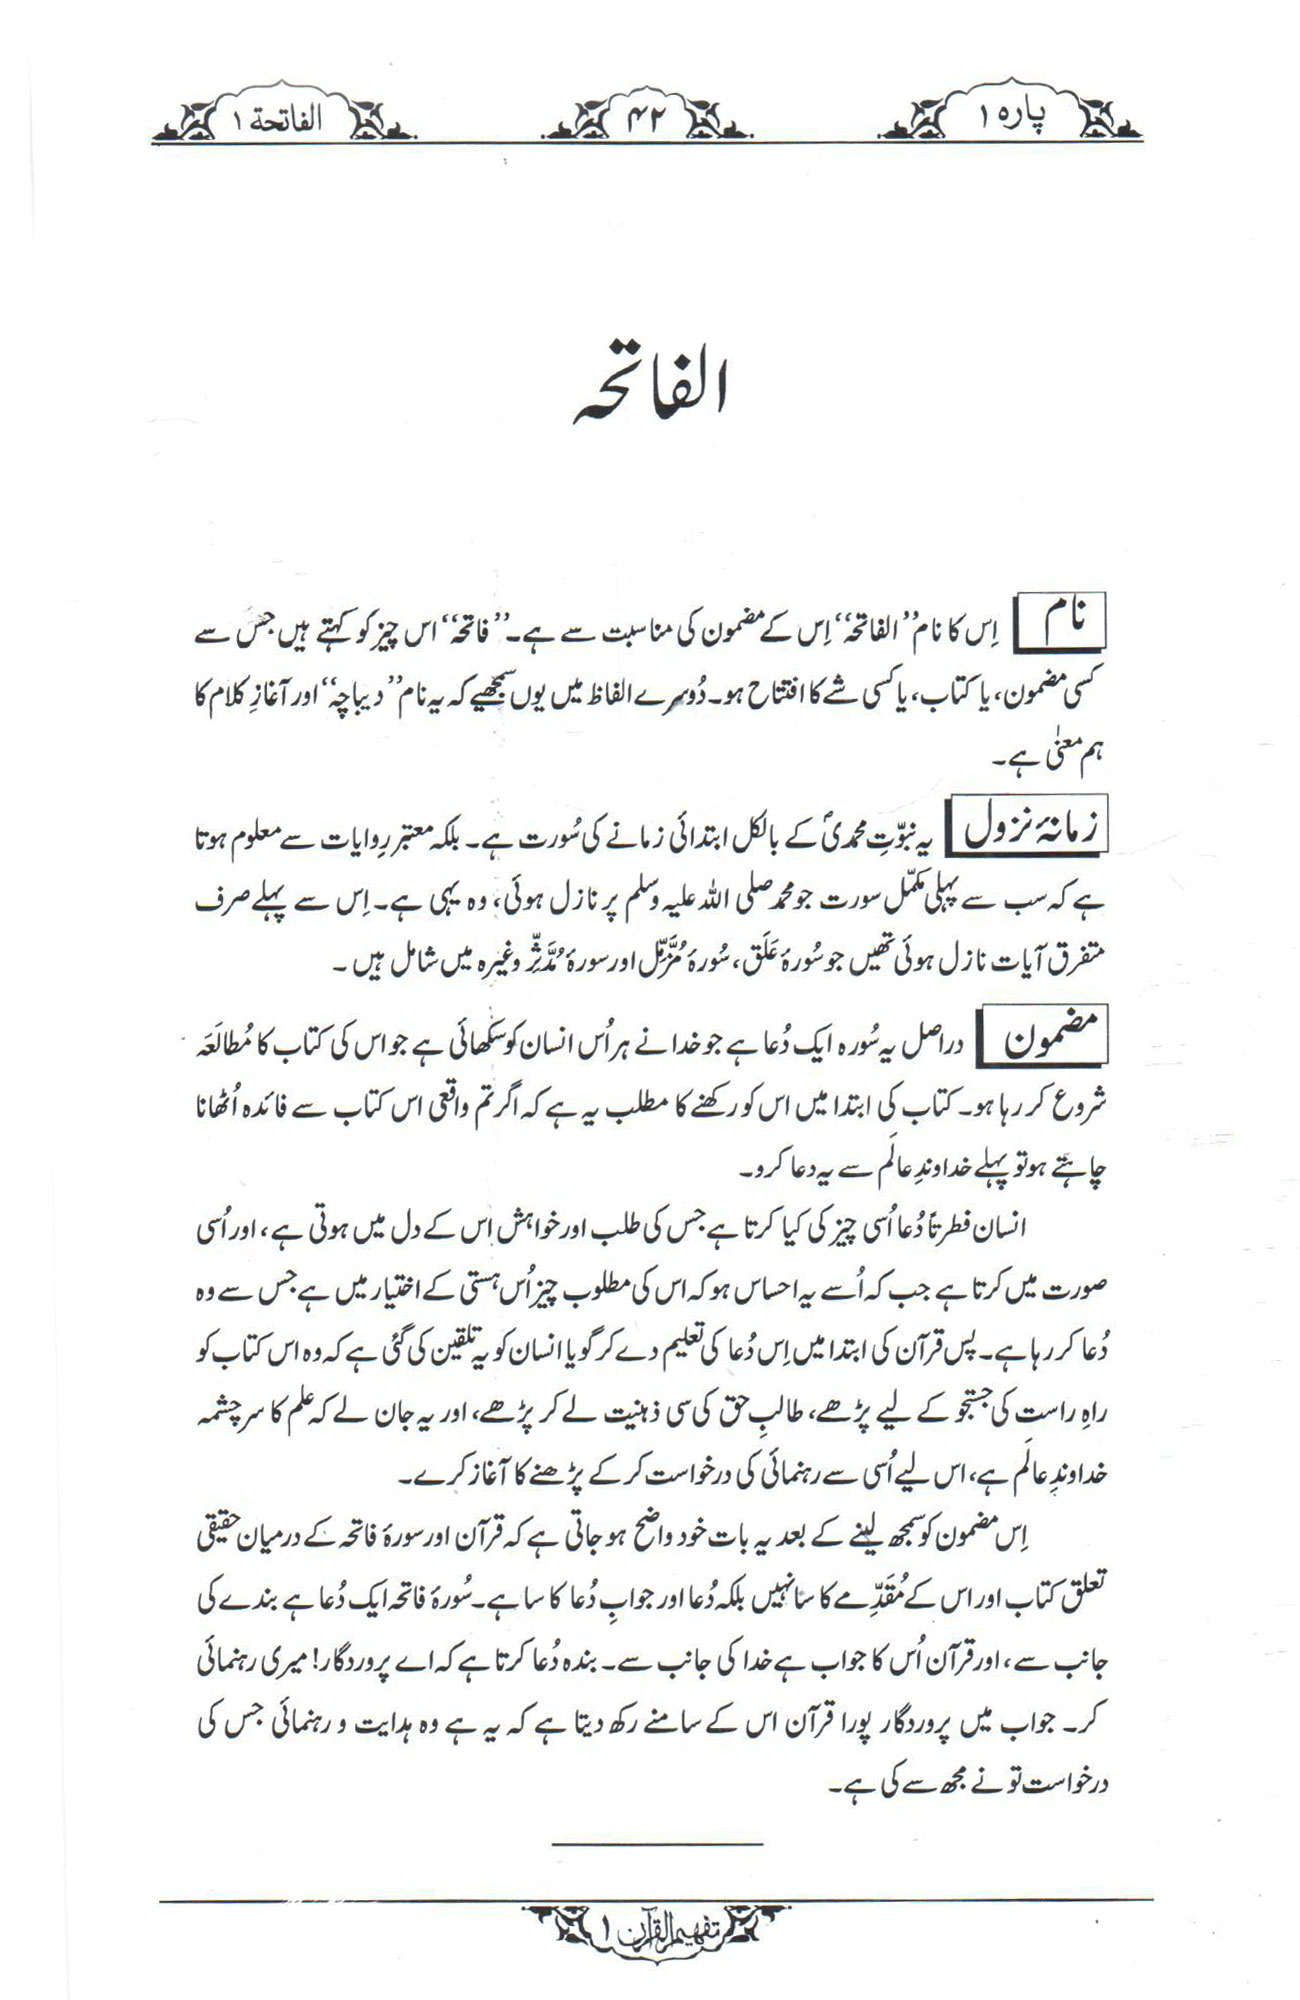 پارہ ۱
۴۲
الفاتحة ۱
الفاتحہ
نام اِس کا نام ’’الفاتحہ‘‘ اِس کے مضمون کی مناسبت سے ہے۔ ’’فاتحہ‘‘ اس چیز کو کہتے ہیں جس سے
کسی مضمون، یا کتاب، یا کسی شے کا افتتاح ہو۔ دُوسرے الفاظ میں یوں سمجھیے کہ یہ نام ’’دیباچہ‘‘ اور آغازِ کلام کا
ہم معنیٰ ہے۔
زمانۂ نزول یہ نبوّتِ محمدیؐ کے بالکل ابتدائی زمانے کی سُورت ہے۔ بلکہ معتبر روایات سے معلوم ہوتا
ہے کہ سب سے پہلی مکمّل سورت جو محمد صلی اللہ علیہ وسلم پر نازل ہوئی، وہ یہی ہے۔ اِس سے پہلے صرف
متفرق آیات نازل ہوئی تھیں جو سُورۂ عَلَق، سُورۂ مُزَّمِّل اور سورۂ مُدَّثِّر وغیرہ میں شامل ہیں۔
مضمون دراصل یہ سُورہ ایک دُعا ہے جو خدا نے ہر اُس انسان کو سکھائی ہے جو اس کی کتاب کا مُطالَعہ
شروع کر رہا ہو۔ کتاب کی ابتدا میں اس کو رکھنے کا مطلب یہ ہے کہ اگر تم واقعی اس کتاب سے فائدہ اُٹھانا
چاہتے ہو تو پہلے خداوندِ عالَم سے یہ دعا کرو۔
انسان فطرتاً دُعا اُسی چیز کی کیا کرتا ہے جس کی طلب اور خواہش اس کے دل میں ہوتی ہے، اور اُسی
صورت میں کرتا ہے جب کہ اُسے یہ احساس ہو کہ اس کی مطلوب چیز اُس ہستی کے اختیار میں ہے جس سے وہ
دُعا کر رہا ہے۔ پس قرآن کی ابتدا میں اِس دُعا کی تعلیم دے کر گویا انسان کو یہ تلقین کی گئی ہے کہ وہ اس کتاب کو
راہِ راست کی جستجو کے لیے پڑھے، طالبِ حق کی سی ذہنیت لے کر پڑھے، اور یہ جان لے کہ علم کا سرچشمہ
خداوندِ عالَم ہے، اس لیے اُسی سے رہنمائی کی درخواست کر کے پڑھنے کا آغاز کرے۔
اِس مضمون کو سمجھ لینے کے بعد یہ بات خود واضح ہو جاتی ہے کہ قرآن اور سورۂ فاتحہ کے درمیان حقیقی
تعلق کتاب اور اس کے مُقدِّمے کا سا نہیں بلکہ دُعا اور جوابِ دُعا کا سا ہے۔ سُورۂ فاتحہ ایک دُعا ہے بندے کی
جانب سے، اور قرآن اُس کا جواب ہے خدا کی جانب سے۔ بندہ دُعا کرتا ہے کہ اے پروردگار! میری رہنمائی
کر۔ جواب میں پروردگار پورا قرآن اس کے سامنے رکھ دیتا ہے کہ یہ ہے وہ ہدایت و رہنمائی جس کی
درخواست تو نے مجھ سے کی ہے۔
تفہیم القرآن ۱